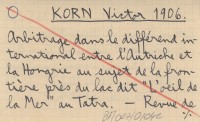 KORN Victor 1906.
Arbitrage dans le différend in-
ternational entre l'Autriche et
la Hongrie au sujet de la fron-
tière près du lac dit "L'oeil de
la Mer" au Tatra. — Revue de